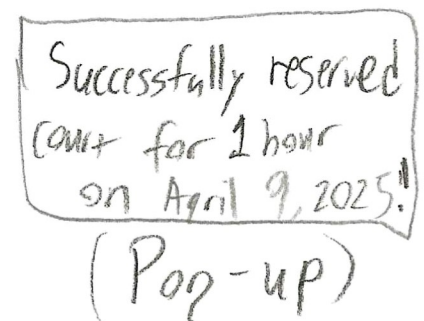 Successfully reserved
court for 1 hour
on April 9, 2025!
(Pop-up)